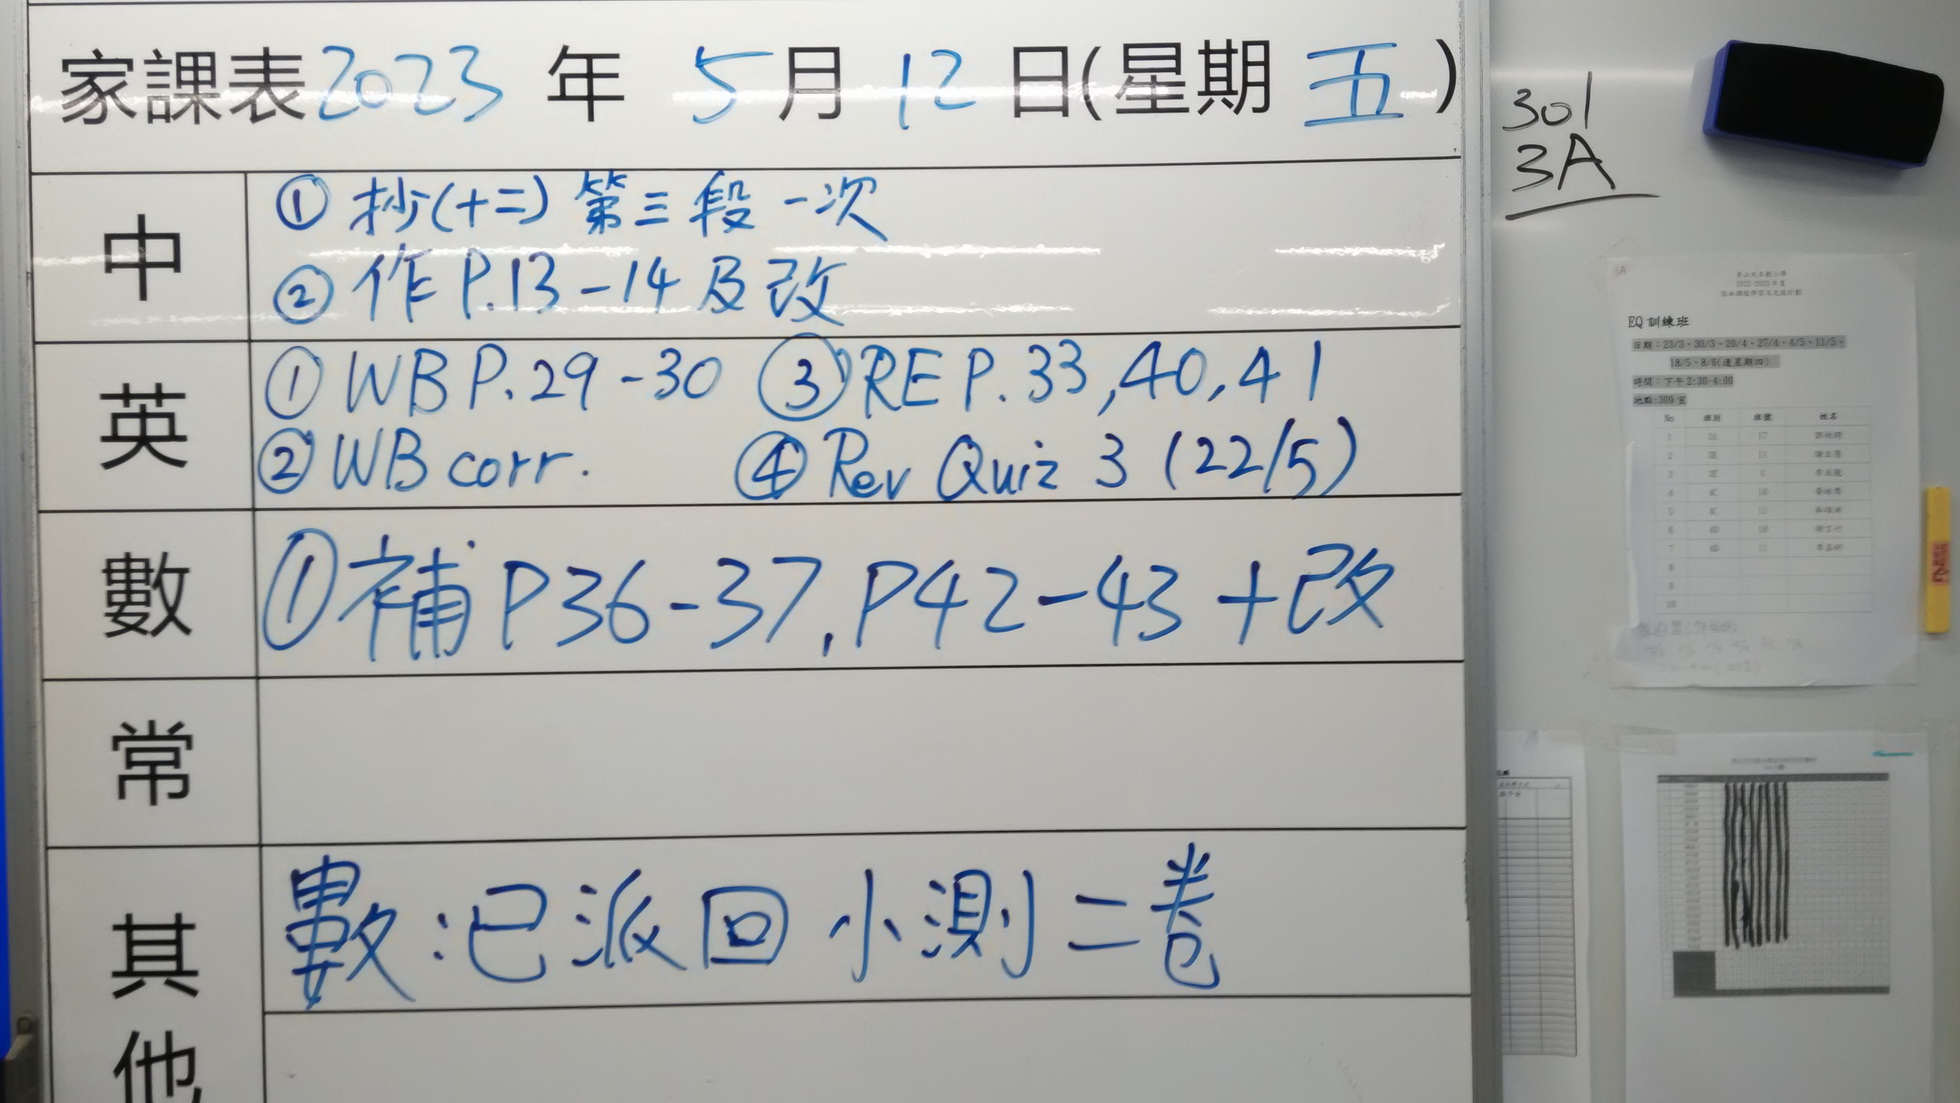 家課表2023年 5月12日(星期五)
中
① 抄(十二)第三段一次
② 作 P.13-14 及改
英
① WB P.29-30 ③ RE P.33,40,41
② WB corr. ④ Rev Quiz 3 (22/5)
數
① 補 P36-37, P42-43 + 改
常
其他
數:已派回小測二卷
301
3A
2022-2023年度
EQ 訓練班
日期:23/3、30/3、20/4、27/4、4/5、11/5、
18/5、8/6(逢星期四)
時間:下午2:30-4:00
地點:309室
No 班別 班號 姓名